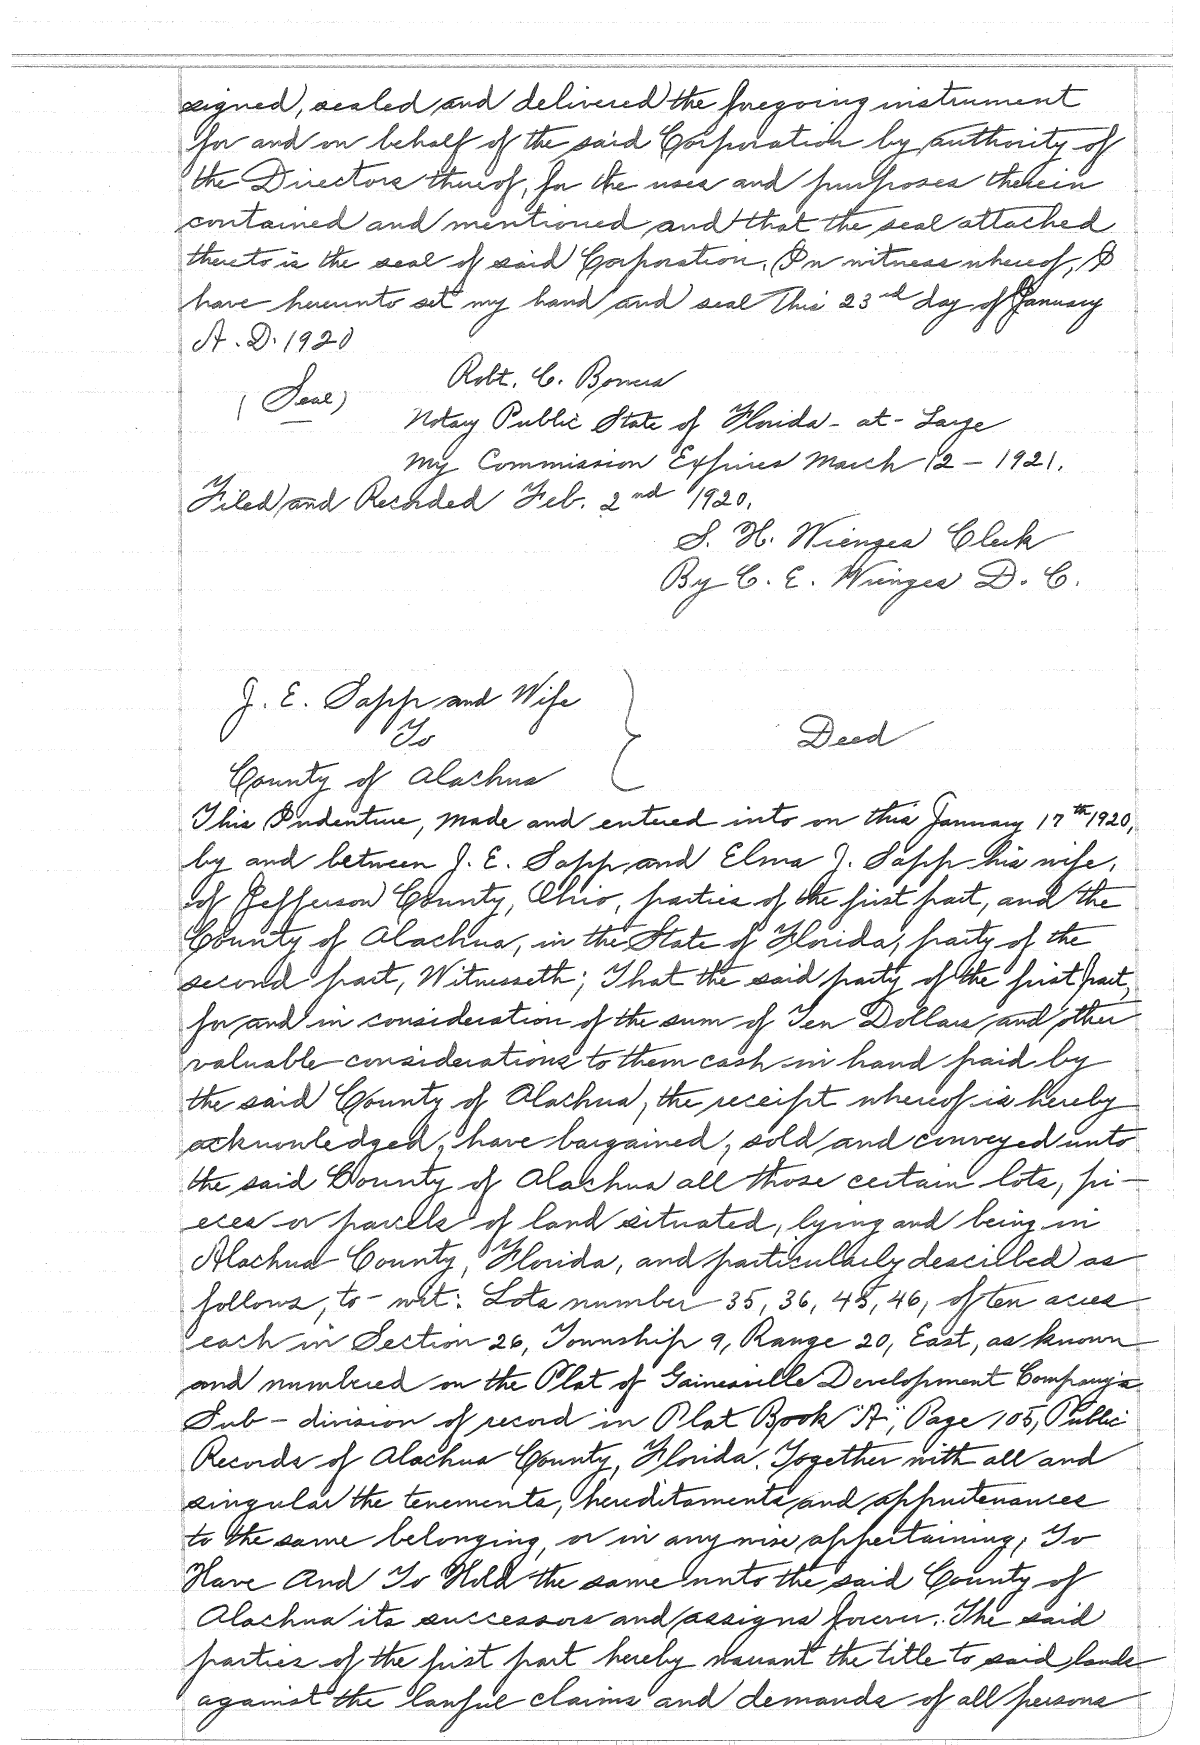 signed, sealed and delivered the foregoing instrument
for and on behalf of the said Corporation by authority of
the Directors thereof, for the uses and purposes therein
contained and mentioned, and that the seal attached
thereto is the seal of said Corporation. In witness whereof, I
have hereunto set my hand and seal this 23rd day of January
A. D. 1920
Robt. C. Bowers
(Seal)
Notary Public State of Florida - at - Large
My Commission Expires March 12 - 1921.
Filed and Recorded Feb. 2nd 1920.
S. H. Wienges Clerk
By C. E. Wienges D. C.
J. E. Sapp and Wife
To
Deed
County of Alachua
This Indenture, made and entered into on this January 17th 1920,
by and between J. E. Sapp and Elma J. Sapp his wife,
of Jefferson County, Ohio, parties of the first part, and the
County of Alachua, in the State of Florida, party of the
second part, Witnesseth; That the said party of the first part,
for and in consideration of the sum of Ten Dollars and other
valuable considerations to them cash in hand paid by
the said County of Alachua, the receipt whereof is hereby
acknowledged, have bargained, sold and conveyed unto
the said County of Alachua all those certain lots, pi-
eces or parcels of land situated, lying and being in
Alachua County, Florida, and particularly described as
follows, to-wit: Lots number 35, 36, 45, 46, of ten acres
each in Section 26, Township 9, Range 20, East, as known
and numbered on the Plat of Gainesville Development Company's
Sub-division of record in Plat Book "A", Page 105, Public
Records of Alachua County, Florida. Together with all and
singular the tenements, hereditaments and appurtenances
to the same belonging, or in any wise appertaining; To
Have And To Hold the same unto the said County of
Alachua its successors and assigns forever. The said
parties of the first part hereby warrant the title to said lands
against the lawful claims and demands of all persons